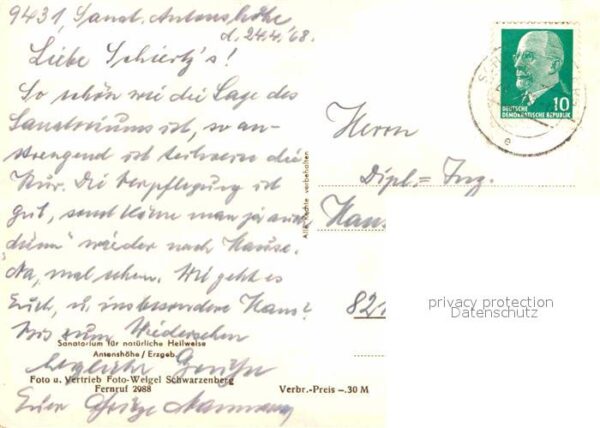 9431, Sanat. Antonshöhe
d. 24.4.68.
Liebe Schiertz's!
So schön wie die Lage des
Sanatoriums ist, so an-
strengend ist teilweise die
Kur. Die Verpflegung ist
gut, sonst käme man ja auch
"dünn" wieder nach Hause.
Na, mal sehen. Wie geht es
Euch, u. insbesondere Hans?
Bis zum Wiedersehen
herzliche Grüße
Euer
Sanatorium für natürliche Heilweise
Antonshöhe/Erzgeb.
Foto u. Vertrieb Foto-Weigel Schwarzenberg
Fernruf 2988
Verbr.-Preis -.30 M
Alle Rechte vorbehalten
DEUTSCHE
DEMOKRATISCHE REPUBLIK
10
Herrn
Dipl.= Ing.
Hans
821
privacy protection
Datenschutz